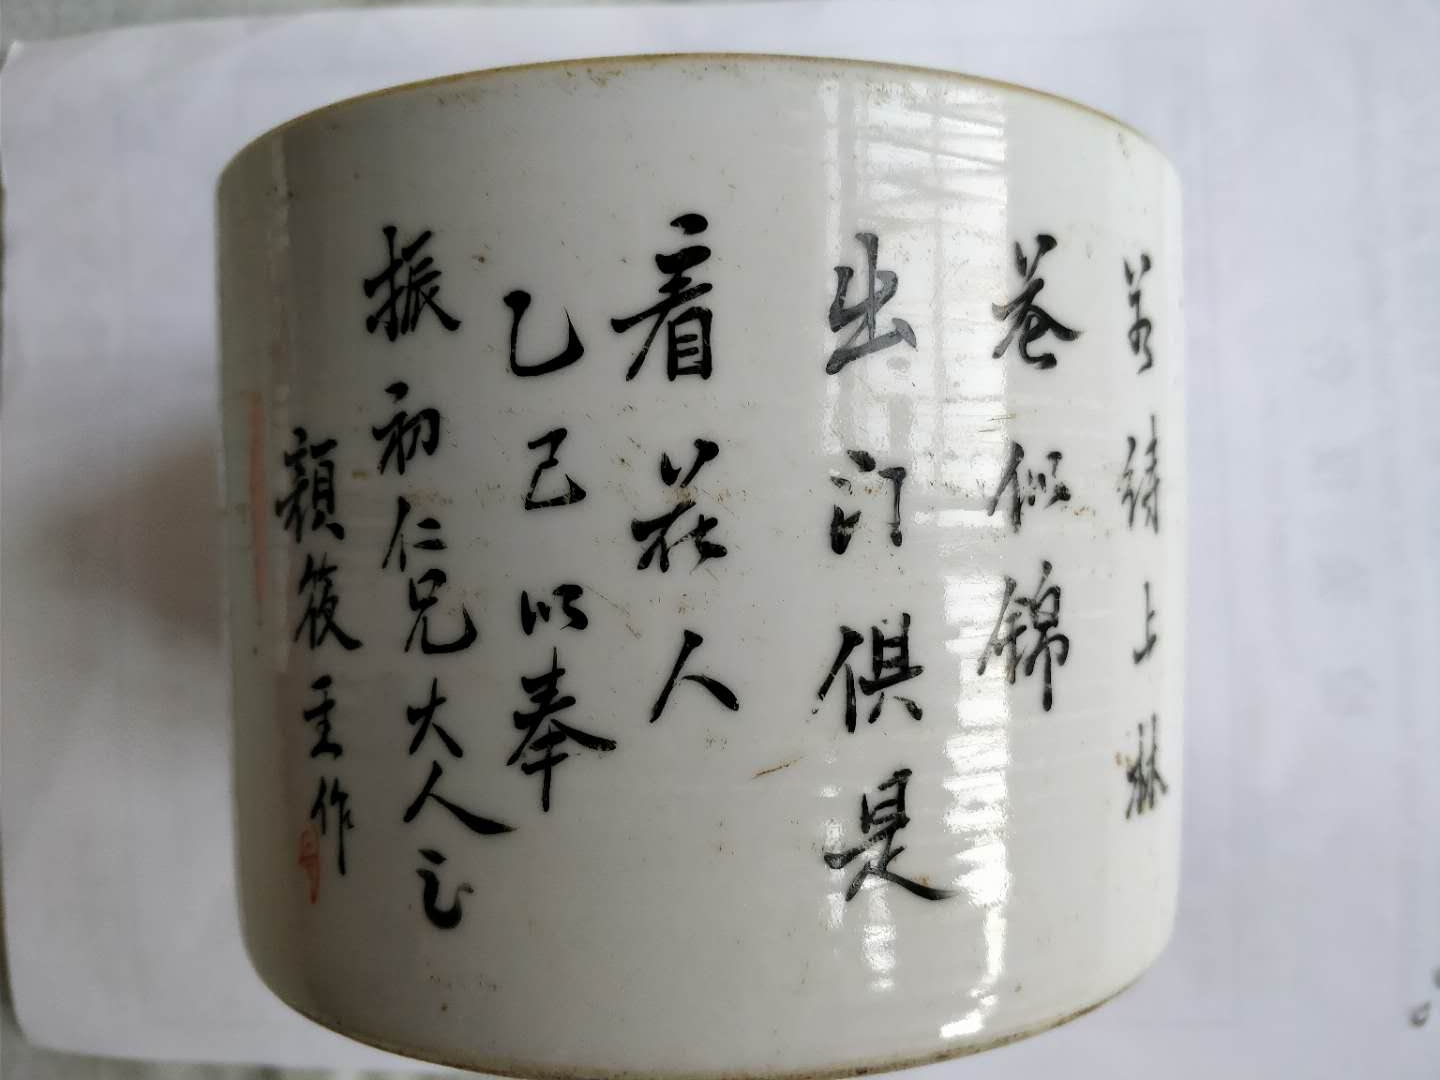 若待上林
花似錦
出门俱是
看花人
乙巳以奉
振初仁兄大人正
顏筱主作